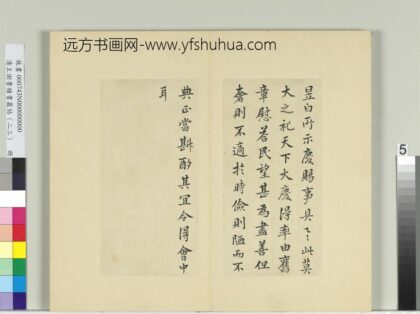 远方书画网-www.yfshuhua.com
昱白所示慶賜事具之此莫
大之礼天下大慶得率由舊
章慰若民望甚為盡善但
奢則不適於時儉則陋而不
典正當斟酌其宜令得會中
耳
故書 000743N00000000
5